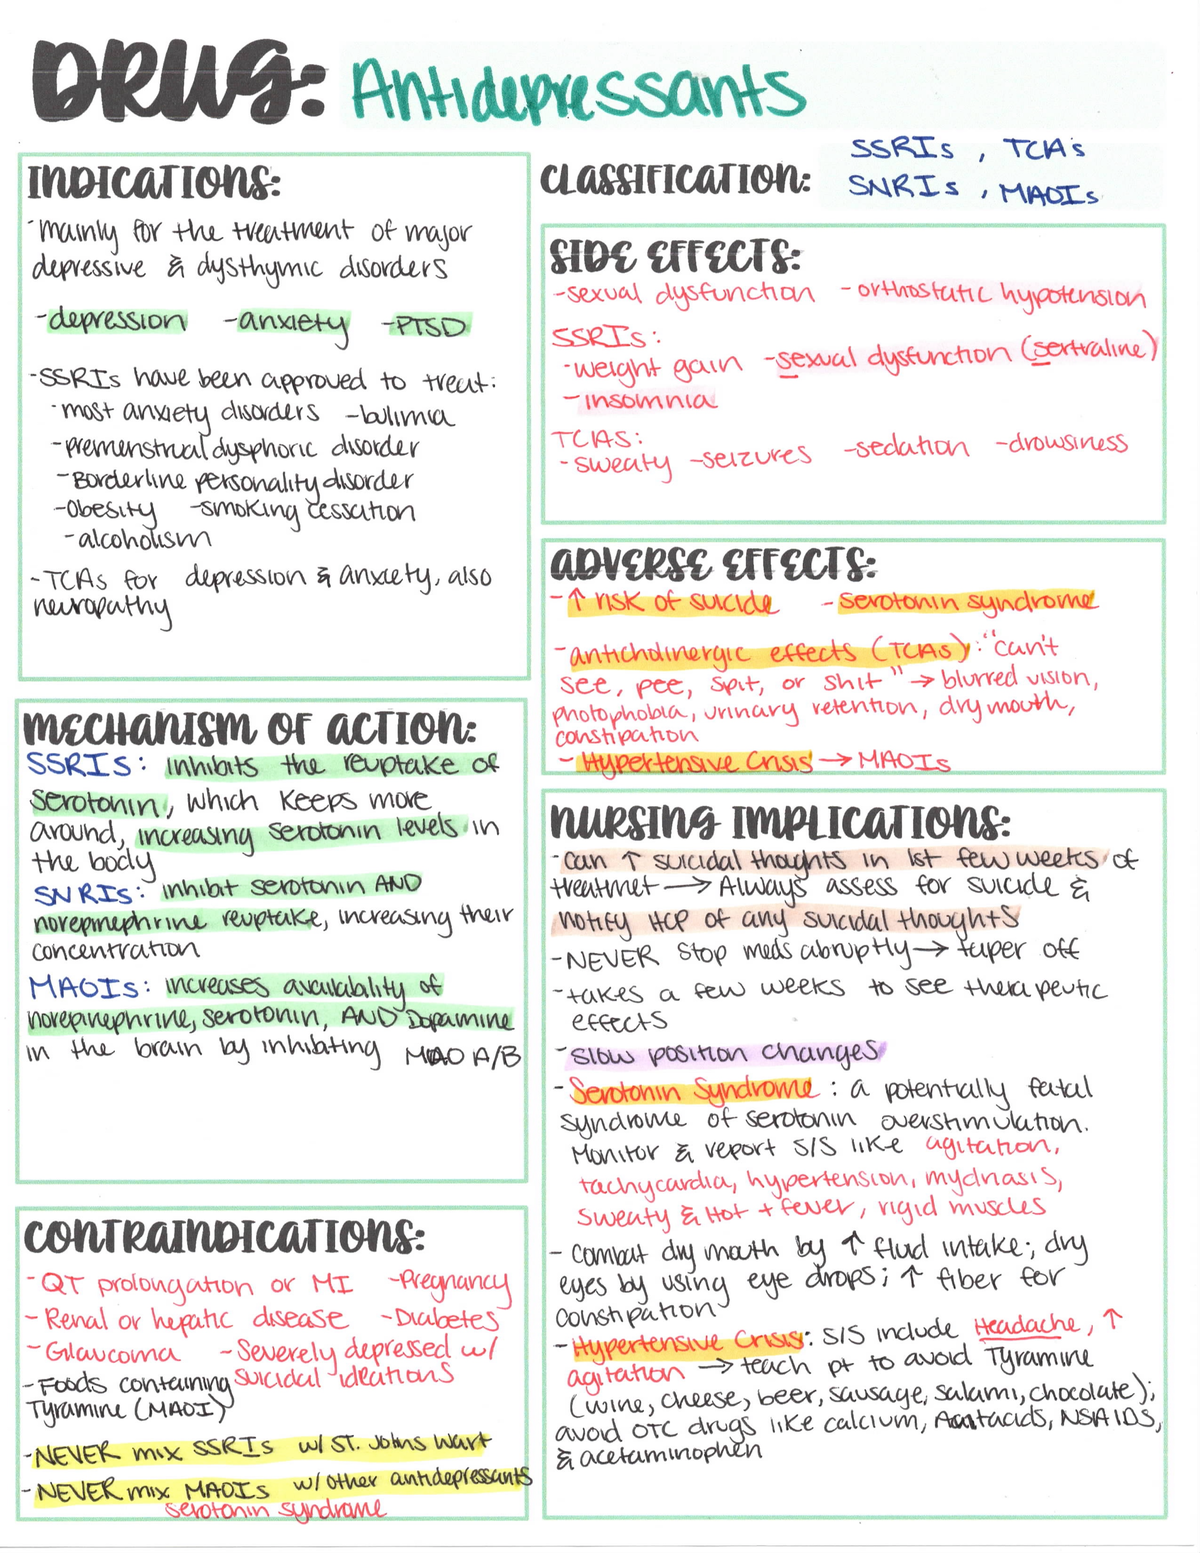 DRUG: Antidepressants
INDICATIONS:
-mainly for the treatment of major
depressive & dysthymic disorders
-depression -anxiety -PTSD
-SSRIs have been approved to treat:
-most anxiety disorders -bulimia
-premenstrual dysphoric disorder
-Borderline personality disorder
-Obesity -smoking cessation
-alcoholism
-TCAs for depression & anxiety, also
neuropathy
MECHANISM OF ACTION:
SSRIS: inhibits the reuptake of
serotonin, which keeps more
around, increasing serotonin levels in
the body
SNRIS: inhibit serotonin AND
norepinephrine reuptake, increasing their
concentration
MAOIs: increases availability of
norepinephrine, serotonin, AND Dopamine
in the brain by inhibiting MAO A/B
CONTRAINDICATIONS:
-QT prolongation or MI -Pregnancy
-Renal or hepatic disease -Diabetes
-Glaucoma -Severely depressed w/
suicidal ideations
-Foods containing
Tyramine (MAOI)
-NEVER mix SSRIs w/ St. Johns Wart
-NEVER mix MAOIs w/ other antidepressants
serotonin syndrome
CLASSIFICATION: SSRIs, TCAs
SNRIs, MAOIs
SIDE EFFECTS:
-sexual dysfunction -orthostatic hypotension
SSRIs:
-weight gain -sexual dysfunction (sertraline)
-insomnia
TCAS:
-sweaty -seizures -sedation -drowsiness
ADVERSE EFFECTS:
-↑ risk of suicide -serotonin syndrome
-anticholinergic effects (TCAs): "can't
see, pee, spit, or shit" → blurred vision,
photophobia, urinary retention, dry mouth,
constipation
-Hypertensive Crisis → MAOIs
NURSING IMPLICATIONS:
-can ↑ suicidal thoughts in 1st few weeks of
treatmet → Always assess for suicide &
notify HCP of any suicidal thoughts
-NEVER stop meds abruptly → taper off
-takes a few weeks to see therapeutic
effects
-slow position changes
-Serotonin Syndrome: a potentially fatal
syndrome of serotonin overstimulation.
Monitor & report S/S like agitation,
tachycardia, hypertension, mydriasis,
sweaty & Hot + fever, rigid muscles
- Combat dry mouth by ↑ fluid intake; dry
eyes by using eye drops; ↑ fiber for
constipation
-Hypertensive Crisis: S/S include Headache, ↑
agitation → teach pt to avoid Tyramine
(wine, cheese, beer, sausage, salami, chocolate);
avoid OTC drugs like calcium, Antacids, NSAIDS,
& acetaminophen